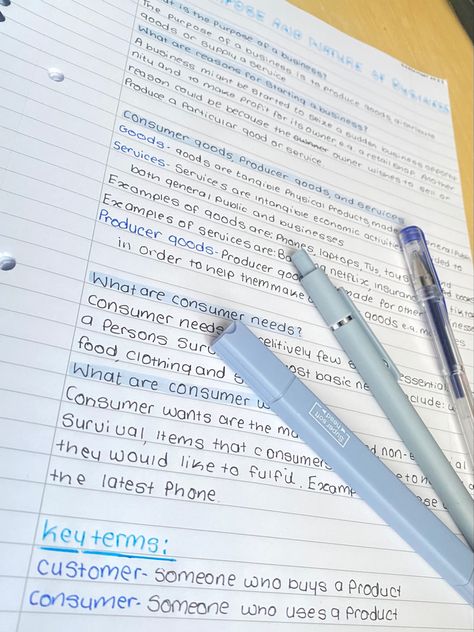 POSE AND NATURE OF BUSINESS
What is the Purpose of a business?
The Purpose of a business is to produce goods, distribute
goods or supply a service
What are reasons for starting a business?
A business might be started to seize a sudden business opportu
nity and to make Profit for its owner e.g a retail shop. Another
reason could be because the owner wishes to sell or
Produce a Particular good or service
Consumer goods, Producer goods, and services
Goods- goods are tangible Physical Products made
Services- Services are intangible economic activities
both general Public and businesses
Examples of goods are: Phones, laptops, TVs, toys
Examples of services are: Netflix, insurance
Producer goods- Producer goods made for other
in order to help them make goods e.g. ma
What are consumer needs?
Consumer needs relitively few essential
a Persons Sur most basic ne include:
food, clothing and
What are consumer w
Consumer wants are the mo and non-e
Survival, items that consumers
they would like to fulfil. Exam
the latest Phone.
Super soft
head
Key terms:
Customer- Someone who buys a Product
Consumer- Someone who uses a Product